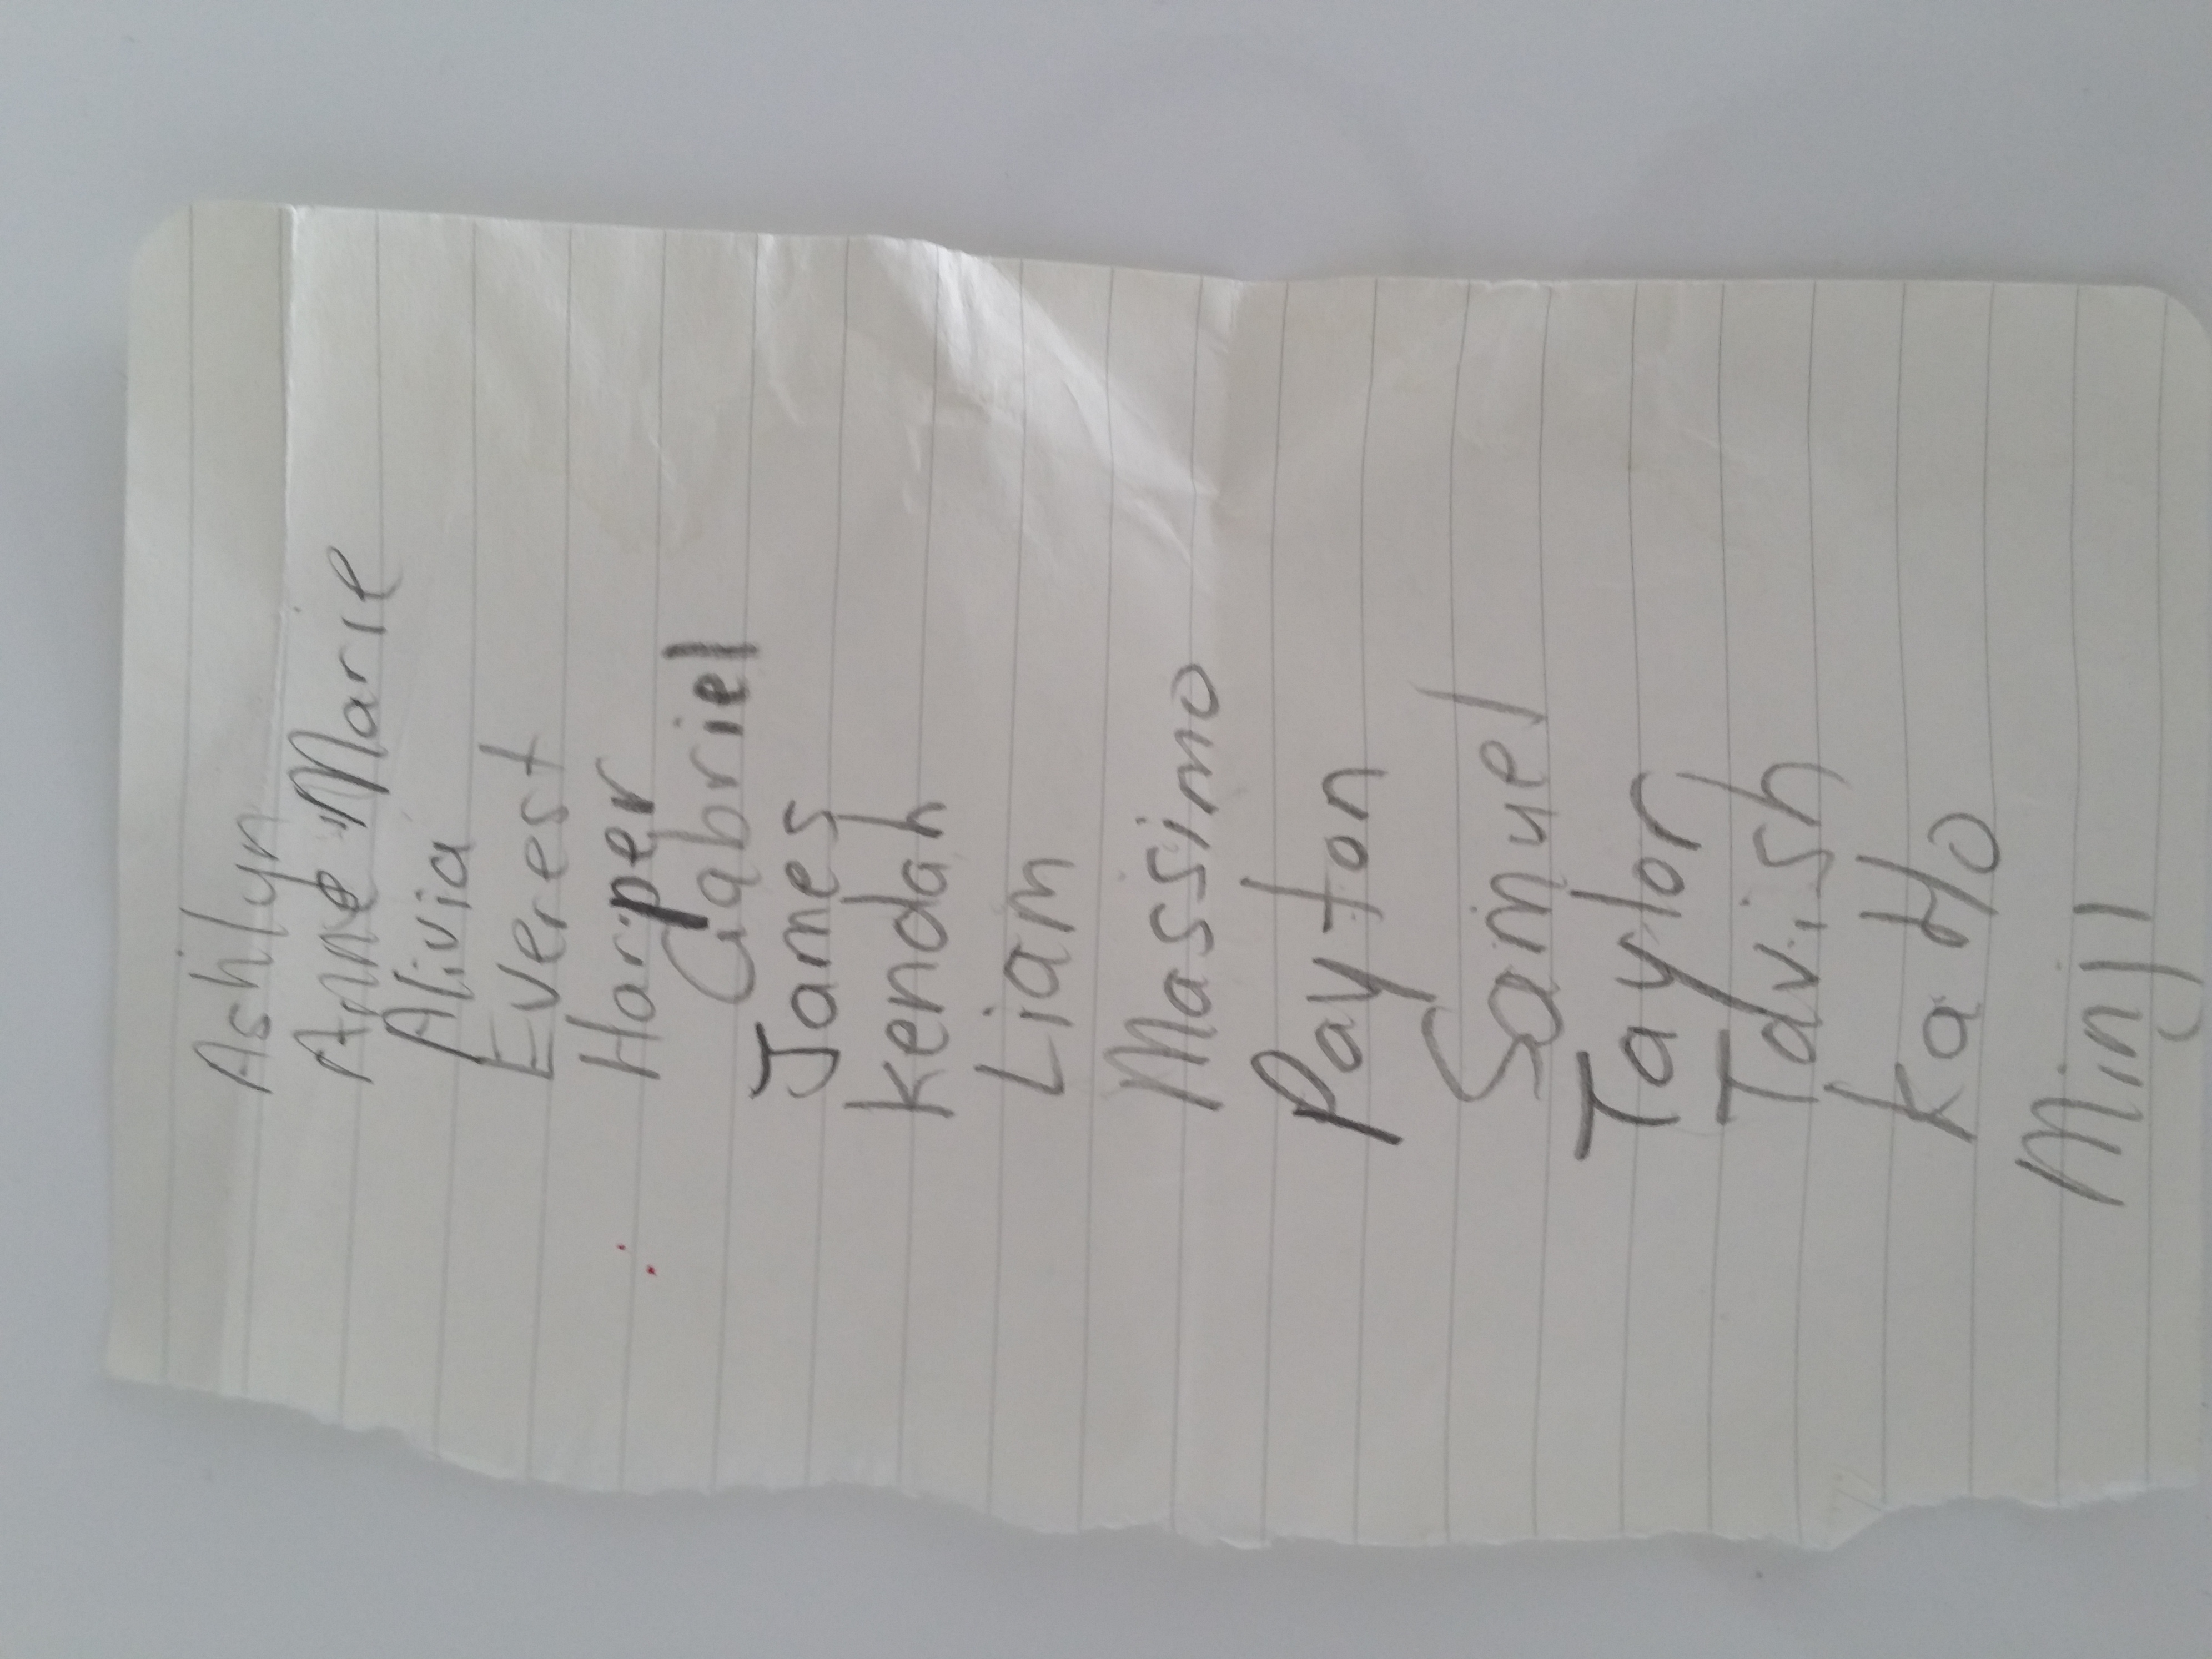 Ashlyn
Anne Marie
Alivia
Everest
Harper
Gabriel
James
Kendah
Liam
Massimo
Payton
Samuel
Taylor
Tavish
Ka Ho
Minji